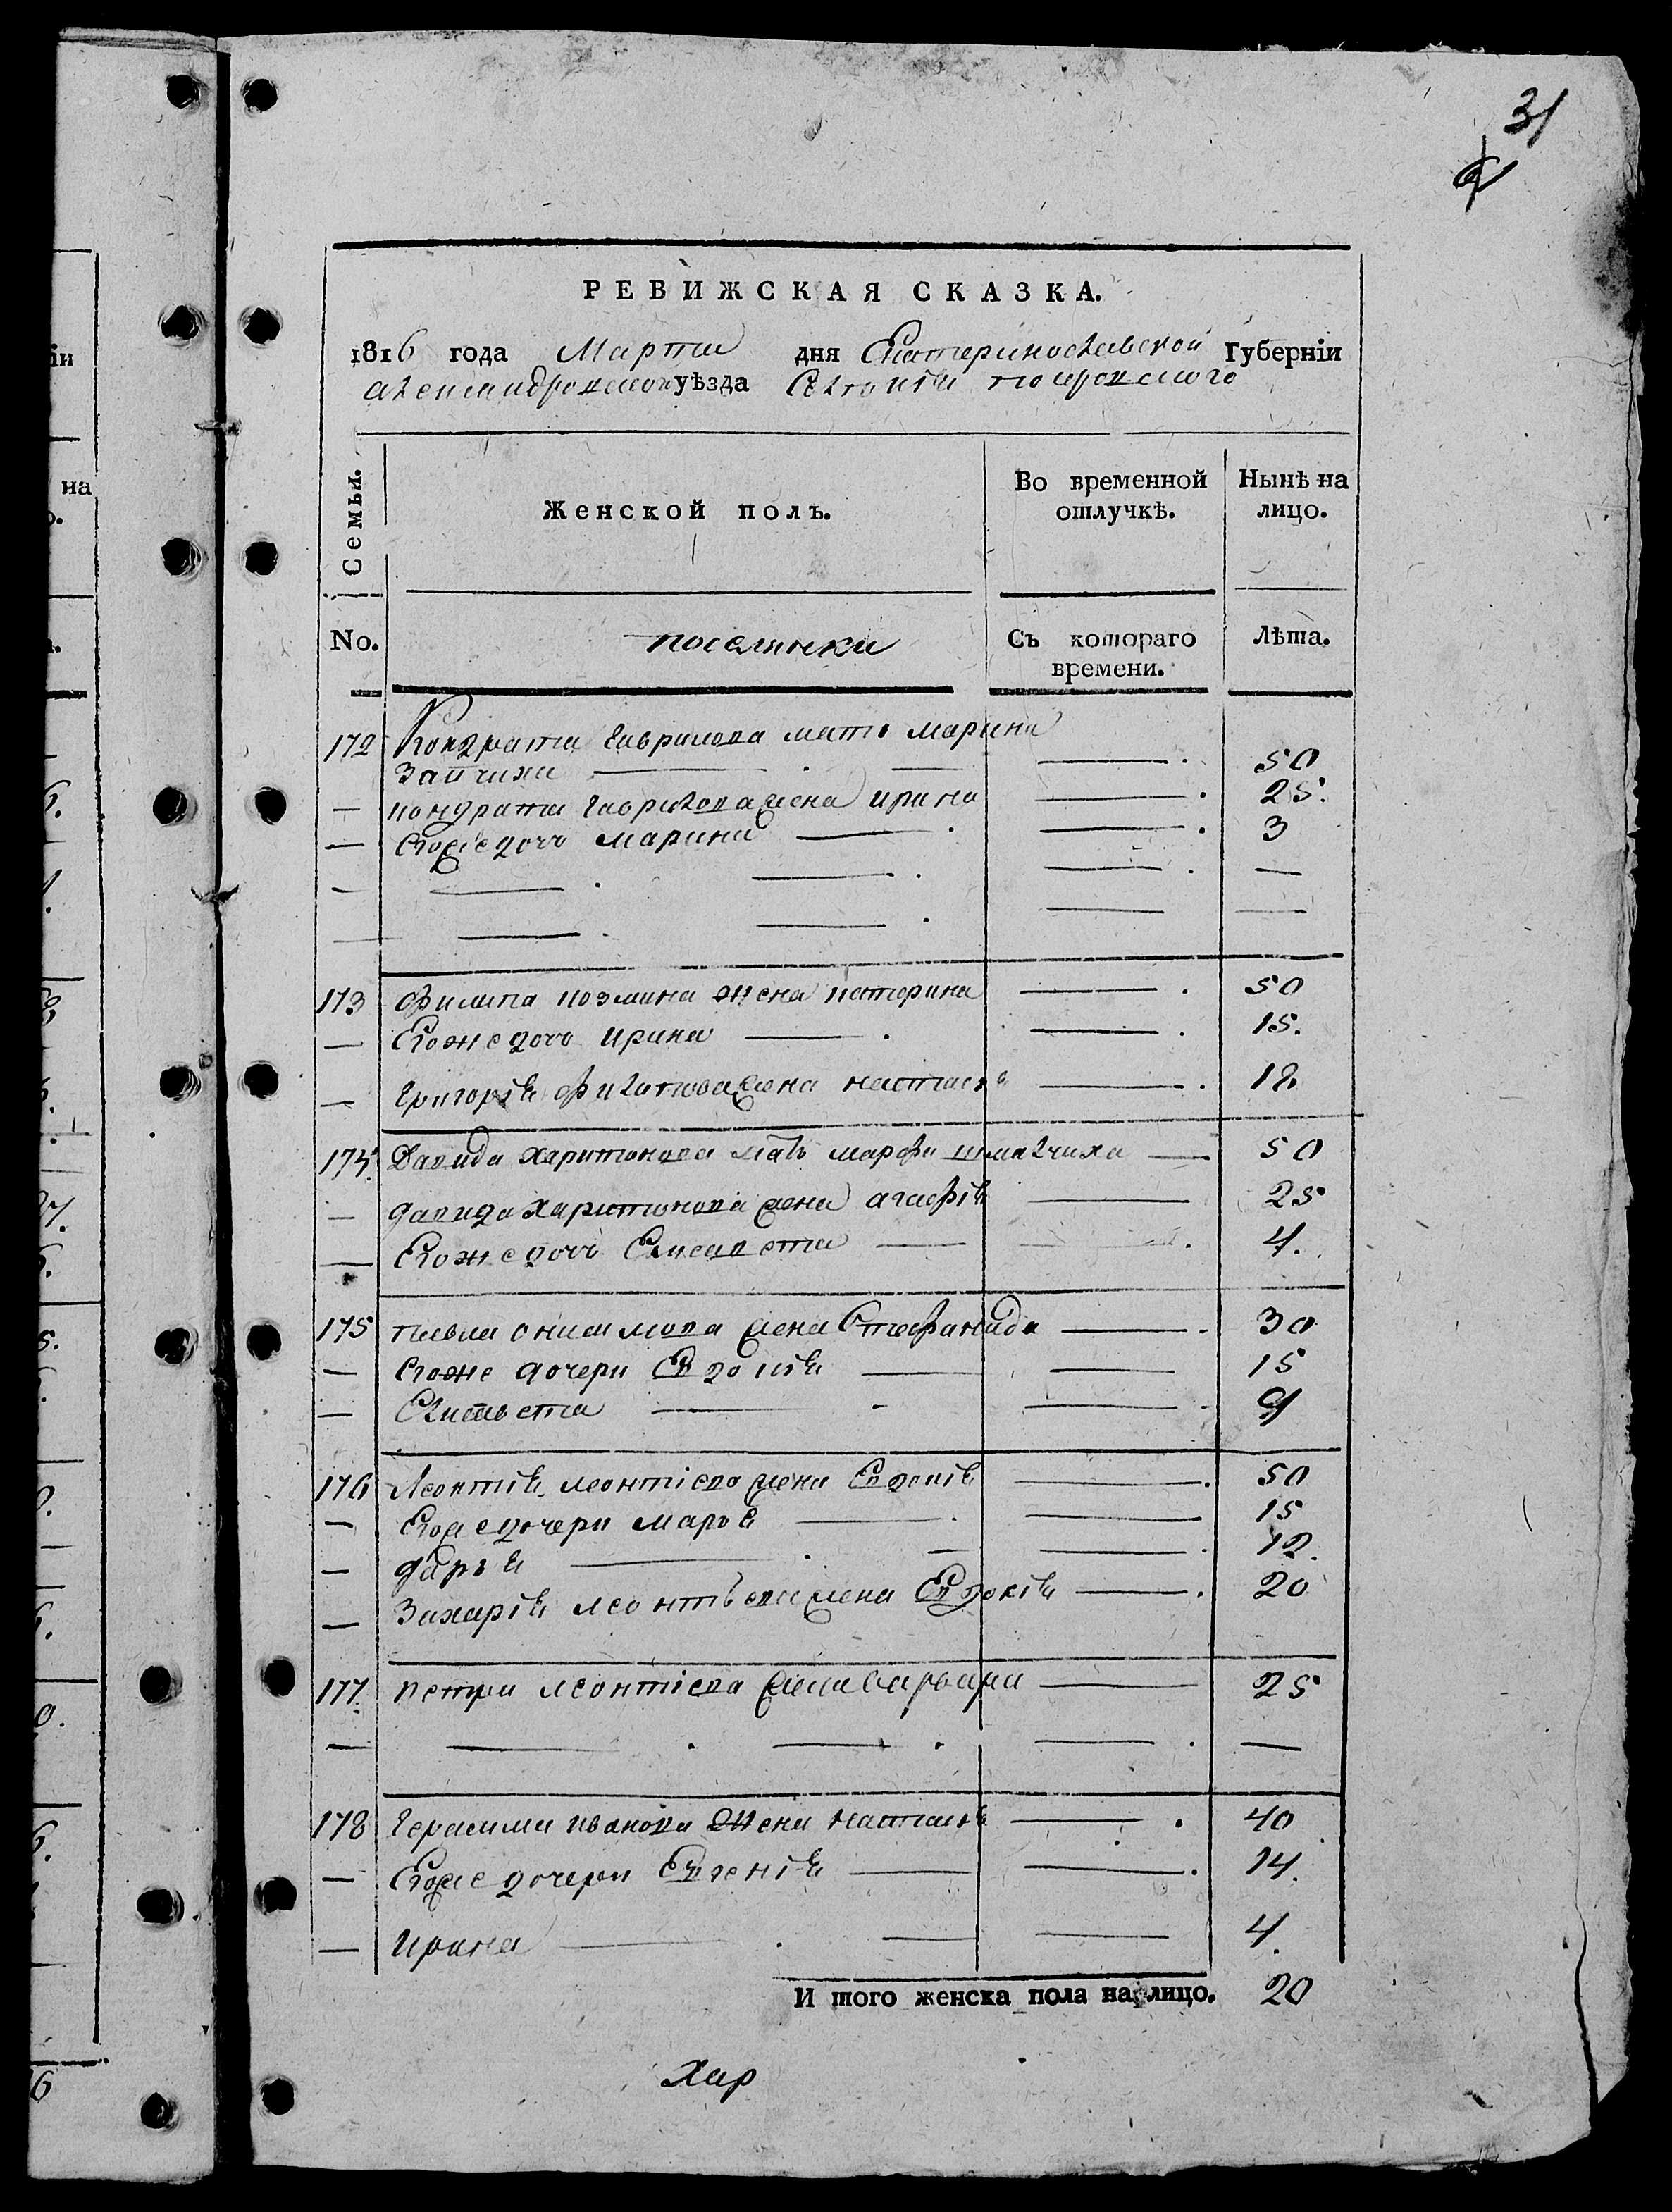 31
РЕВИЖСКАЯ СКАЗКА.
1816 года Марта дня Екатеринославской Губерніи
александровского уѣзда Селенія покровского
Семьи. Женской полъ. Во временной отлучкѣ. Нынѣ на лицо.
No. поселянки Съ котораго времени. Лѣта.
172 Кондрата Гаврилова мать марина
Запчиха — 50
— кондрата Гаврилова жена ирина — 25.
— Егоже дочь марина — 3
173 филипа козмина жена катерина — 50
— Егоже дочь ирина — 15.
— Григорія филипова жена настасья — 18
174. Давида харитонова мать марфа шмалчиха — 50
— давида харитонова жена агафія — 25
— Егоже дочь Елисавета — 4.
175 павла онисимова жена Стефанида — 30
— Егоже дочери Евдокія — 15
— Елисавета — 9
176 Леонтія леонтіева жена Евдокія — 50
— Егоже дочери марья — 15
— дарья — 12.
— Захарія леонтьева жена Евдокія — 20
177. петра леонтіева жена варвара — 25
178 Герасима иванова жена настасья — 40
— Егоже дочери Евгенія — 14.
— ирина — 4.
И того женска пола на лицо. 20
Хар